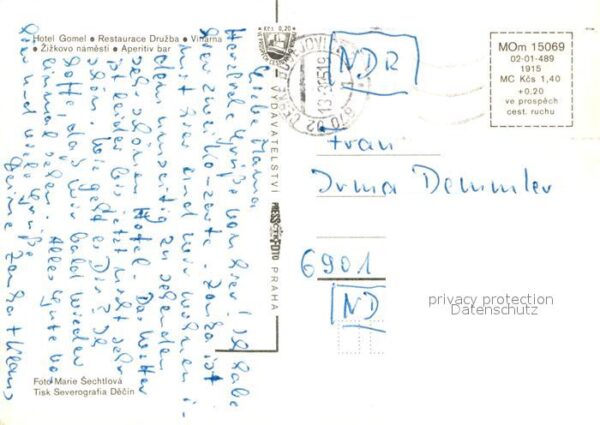 Hotel Gomel • Restaurace Družba • Vinárna
• Žižkovo náměstí • Aperitiv bar
Liebe Mama
Herzliche Grüße von hier! Ich habe
hier zwei
mit hier und wir wohnen i-
dem umseitig zu sehenden
sehr schönen Hotel. Das Wetter
ist leider bis jetzt nicht sehr
schön. Wie geht es Dir? Ich
hoffe, daß wir bald wieder
einmal sehen. Alles Gute
und viele Grüße
Deine
Foto Marie Šechtlová
Tisk Severografia Děčín
VYDAVATELSTVÍ PRESSFOTO PRAHA
Kčs 0,20
NDR
MOm 15069
02-01-489
1915
MC Kčs 1,40
+0,20
ve prospěch
cest. ruchu
Frau
Irma Demmler
6901
ND
privacy protection
Datenschutz